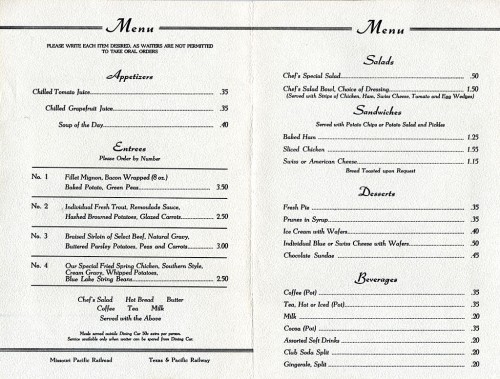 Menu
PLEASE WRITE EACH ITEM DESIRED, AS WAITERS ARE NOT PERMITTED
TO TAKE ORAL ORDERS
Appetizers
Chilled Tomato Juice .35
Chilled Grapefruit Juice .35
Soup of the Day .40
Entrees
Please Order by Number
No. 1 Fillet Mignon, Bacon Wrapped (8 oz.)
Baked Potato, Green Peas 3.50
No. 2 Individual Fresh Trout, Remoulade Sauce,
Hashed Browned Potatoes, Glazed Carrots 2.50
No. 3 Braised Sirloin of Select Beef, Natural Gravy,
Buttered Parsley Potatoes, Peas and Carrots 3.00
No. 4 Our Special Fried Spring Chicken, Southern Style,
Cream Gravy, Whipped Potatoes,
Blue Lake String Beans 2.50
Chef's Salad Hot Bread Butter
Coffee Tea Milk
Served with the Above
Meals served outside Dining Car 50c extra per person.
Service available only when waiter can be spared from Dining Car.
Missouri Pacific Railroad Texas & Pacific Railway
Menu
Salads
Chef's Special Salad .50
Chef's Salad Bowl, Choice of Dressing 1.50
(Served with Strips of Chicken, Ham, Swiss Cheese, Tomato and Egg Wedges)
Sandwiches
Served with Potato Chips or Potato Salad and Pickles
Baked Ham 1.25
Sliced Chicken 1.55
Swiss or American Cheese 1.15
Bread Toasted upon Request
Desserts
Fresh Pie .35
Prunes in Syrup .35
Ice Cream with Wafers .40
Individual Blue or Swiss Cheese with Wafers .50
Chocolate Sundae .45
Beverages
Coffee (Pot) .35
Tea, Hot or Iced (Pot) .35
Milk .20
Cocoa (Pot) .35
Assorted Soft Drinks .20
Club Soda Split .20
Gingerale, Split .20